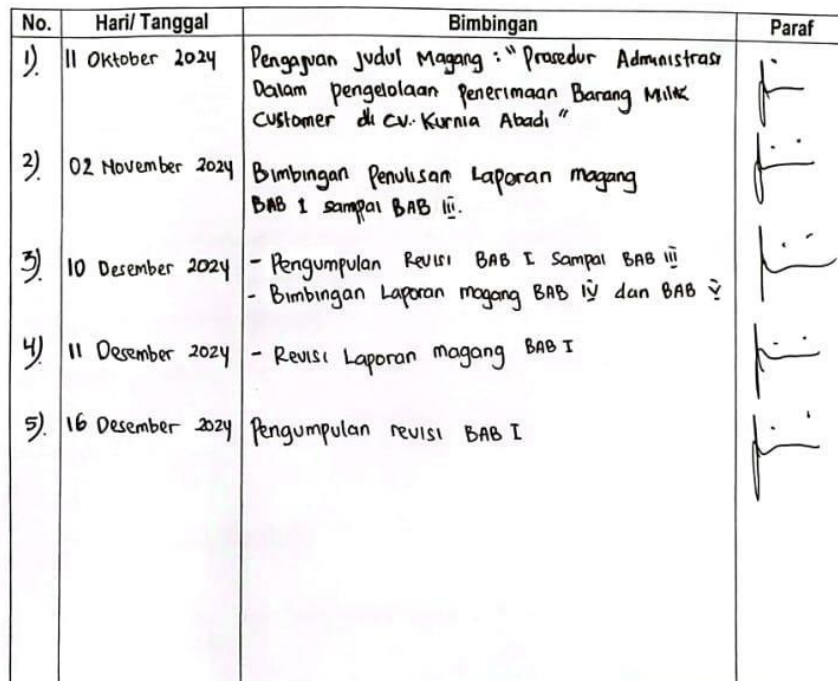 No. Hari/ Tanggal Bimbingan Paraf
1). 11 Oktober 2024 Pengajuan Judul Magang : " Prosedur Administrasi
Dalam pengelolaan Penerimaan Barang Milik
Customer di CV. Kurnia Abadi "
2). 02 November 2024 Bimbingan Penulisan Laporan magang
BAB I sampai BAB iii.
3) 10 Desember 2024 - Pengumpulan Revisi BAB I Sampai BAB iii
- Bimbingan Laporan magang BAB IV dan BAB V
4) 11 Desember 2024 - Revisi Laporan magang BAB I
5). 16 Desember 2024 Pengumpulan revisi BAB I